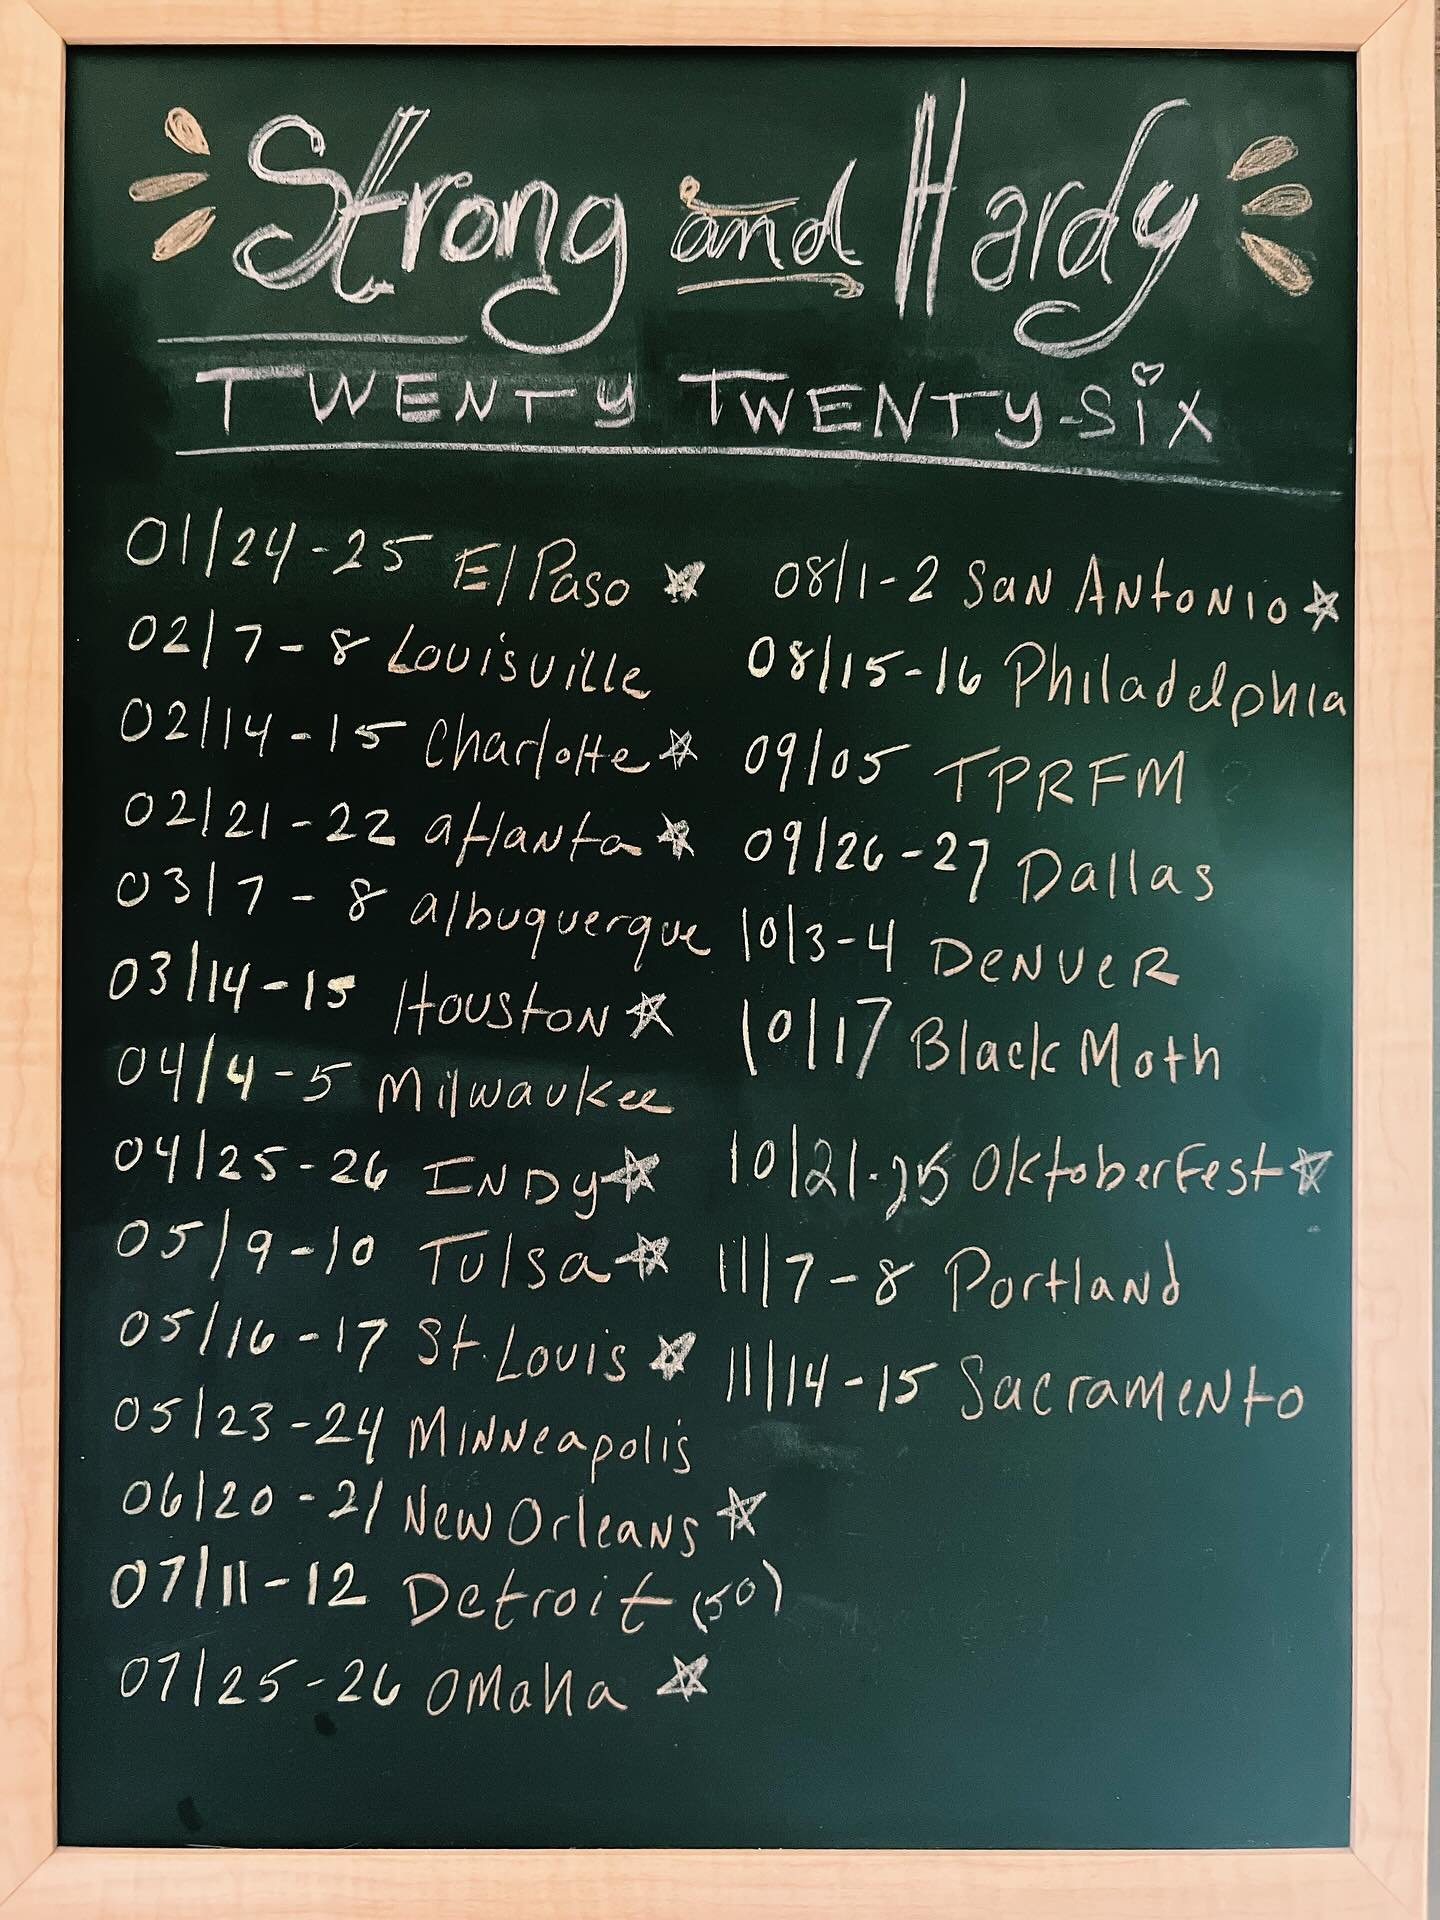 Strong and Hardy
TWENTY TWENTY-Six
01/24-25 El Paso ☆
02/7-8 Louisville
02/14-15 Charlotte ☆
02/21-22 atlanta ☆
03/7-8 albuquerque
03/14-15 Houston ☆
04/4-5 Milwaukee
04/25-26 INDy ☆
05/9-10 Tulsa ☆
05/16-17 St. Louis ☆
05/23-24 Minneapolis
06/20-21 New Orleans ☆
07/11-12 Detroit (50)
07/25-26 Omaha ☆
08/1-2 San Antonio ☆
08/15-16 Philadelphia
09/05 TPRFM
09/26-27 Dallas
10/3-4 DENVER
10/17 Black Moth
10/21-25 Oktoberfest ☆
11/7-8 Portland
11/14-15 Sacramento